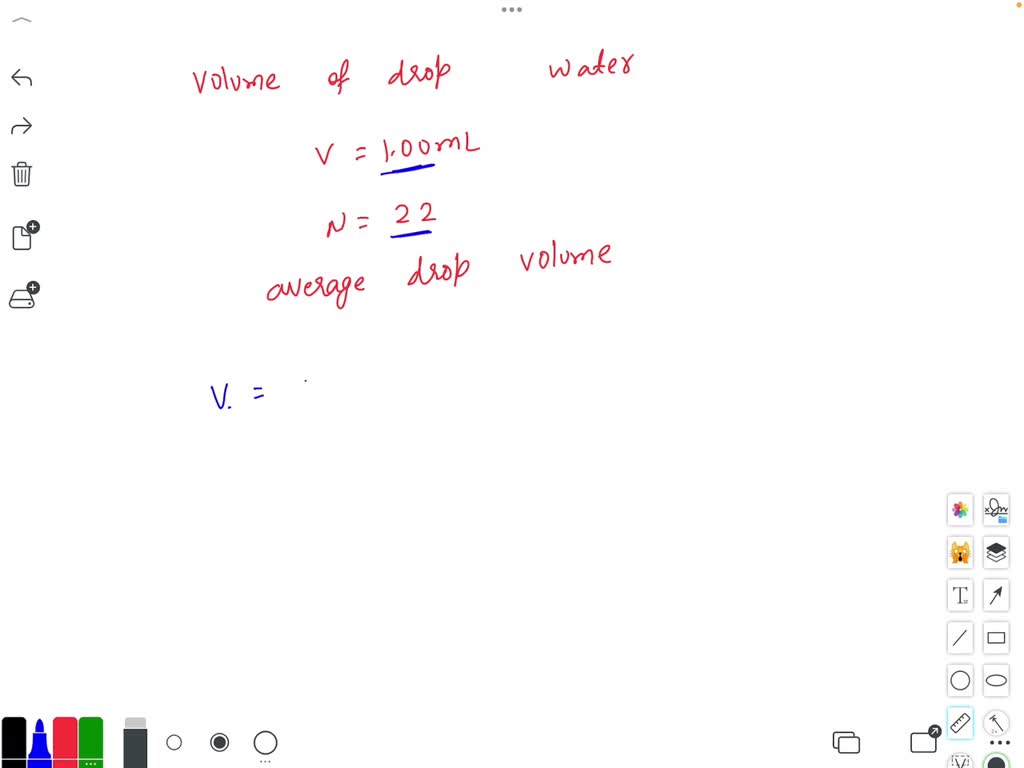 Volume of drop water
V = 1.00mL
N = 22
average drop volume
V. =